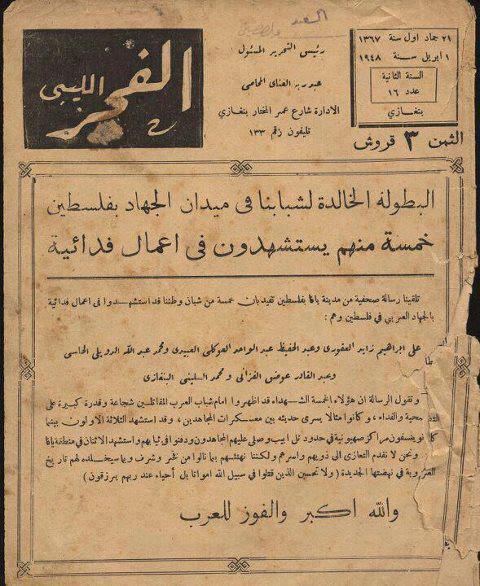 الفجر
الليبى
رئيس التحرير المسئول
عبدربه الغناى المحامى
الادارة شارع عمر المختار بنغازي
تليفون رقم ١٣٣
٢١ جماد اول سنة ١٣٦٧
١ ابريل سنة ١٩٤٨
السنة الثانية
عدد ١٦
بنغازي
الثمن ٣ قروش
البطولة الخالدة لشبابنا في ميدان الجهاد بفلسطين
خمسة منهم يستشهدون في اعمال فدائية
تلقينا رسالة صحفية من مدينة يافا بفلسطين تفيد بان خمسة من شبان وطننا قد استشهدوا في اعمال فدائية
بالجهاد العربي في فلسطين وهم :
على ابراهيم زايد العقورى وعبد الحفيظ عبد الواحد العوكلى العبيدى ومحمد عبد الله الرويلى الحاسى
وعبد القادر عوضى الفزانى ومحمد السلينى البنغازى
وتقول الرسالة ان هؤلاء الخمسة الشهداء قد اظهروا امام شباب العرب المقاتلين شجاعة وقدرة كبيرة على
والفداء ، وكانوا مثالا يسرى حديثه بين معسكرات المجاهدين ، وقد استشهد الثلاثة الاولون بينما
ينسفون مراكز صهيونية في حدود تل ابيب وصلي عليهم المجاهدون ودفنوا في ثيابهم واستشهد الاثنان في منطقة يافا
ونحن لا نقدم التعازى الى ذويهم واسرهم ولكننا نهنئهم بما نالوا من فخر وشرف وبما سيخلده لهم تاريخ
في نهضتها الجديدة ( ولا تحسبن الذين قتلوا في سبيل الله امواتا بل أحياء عند ربهم يرزقون )
والله اكبر والفوز للعرب